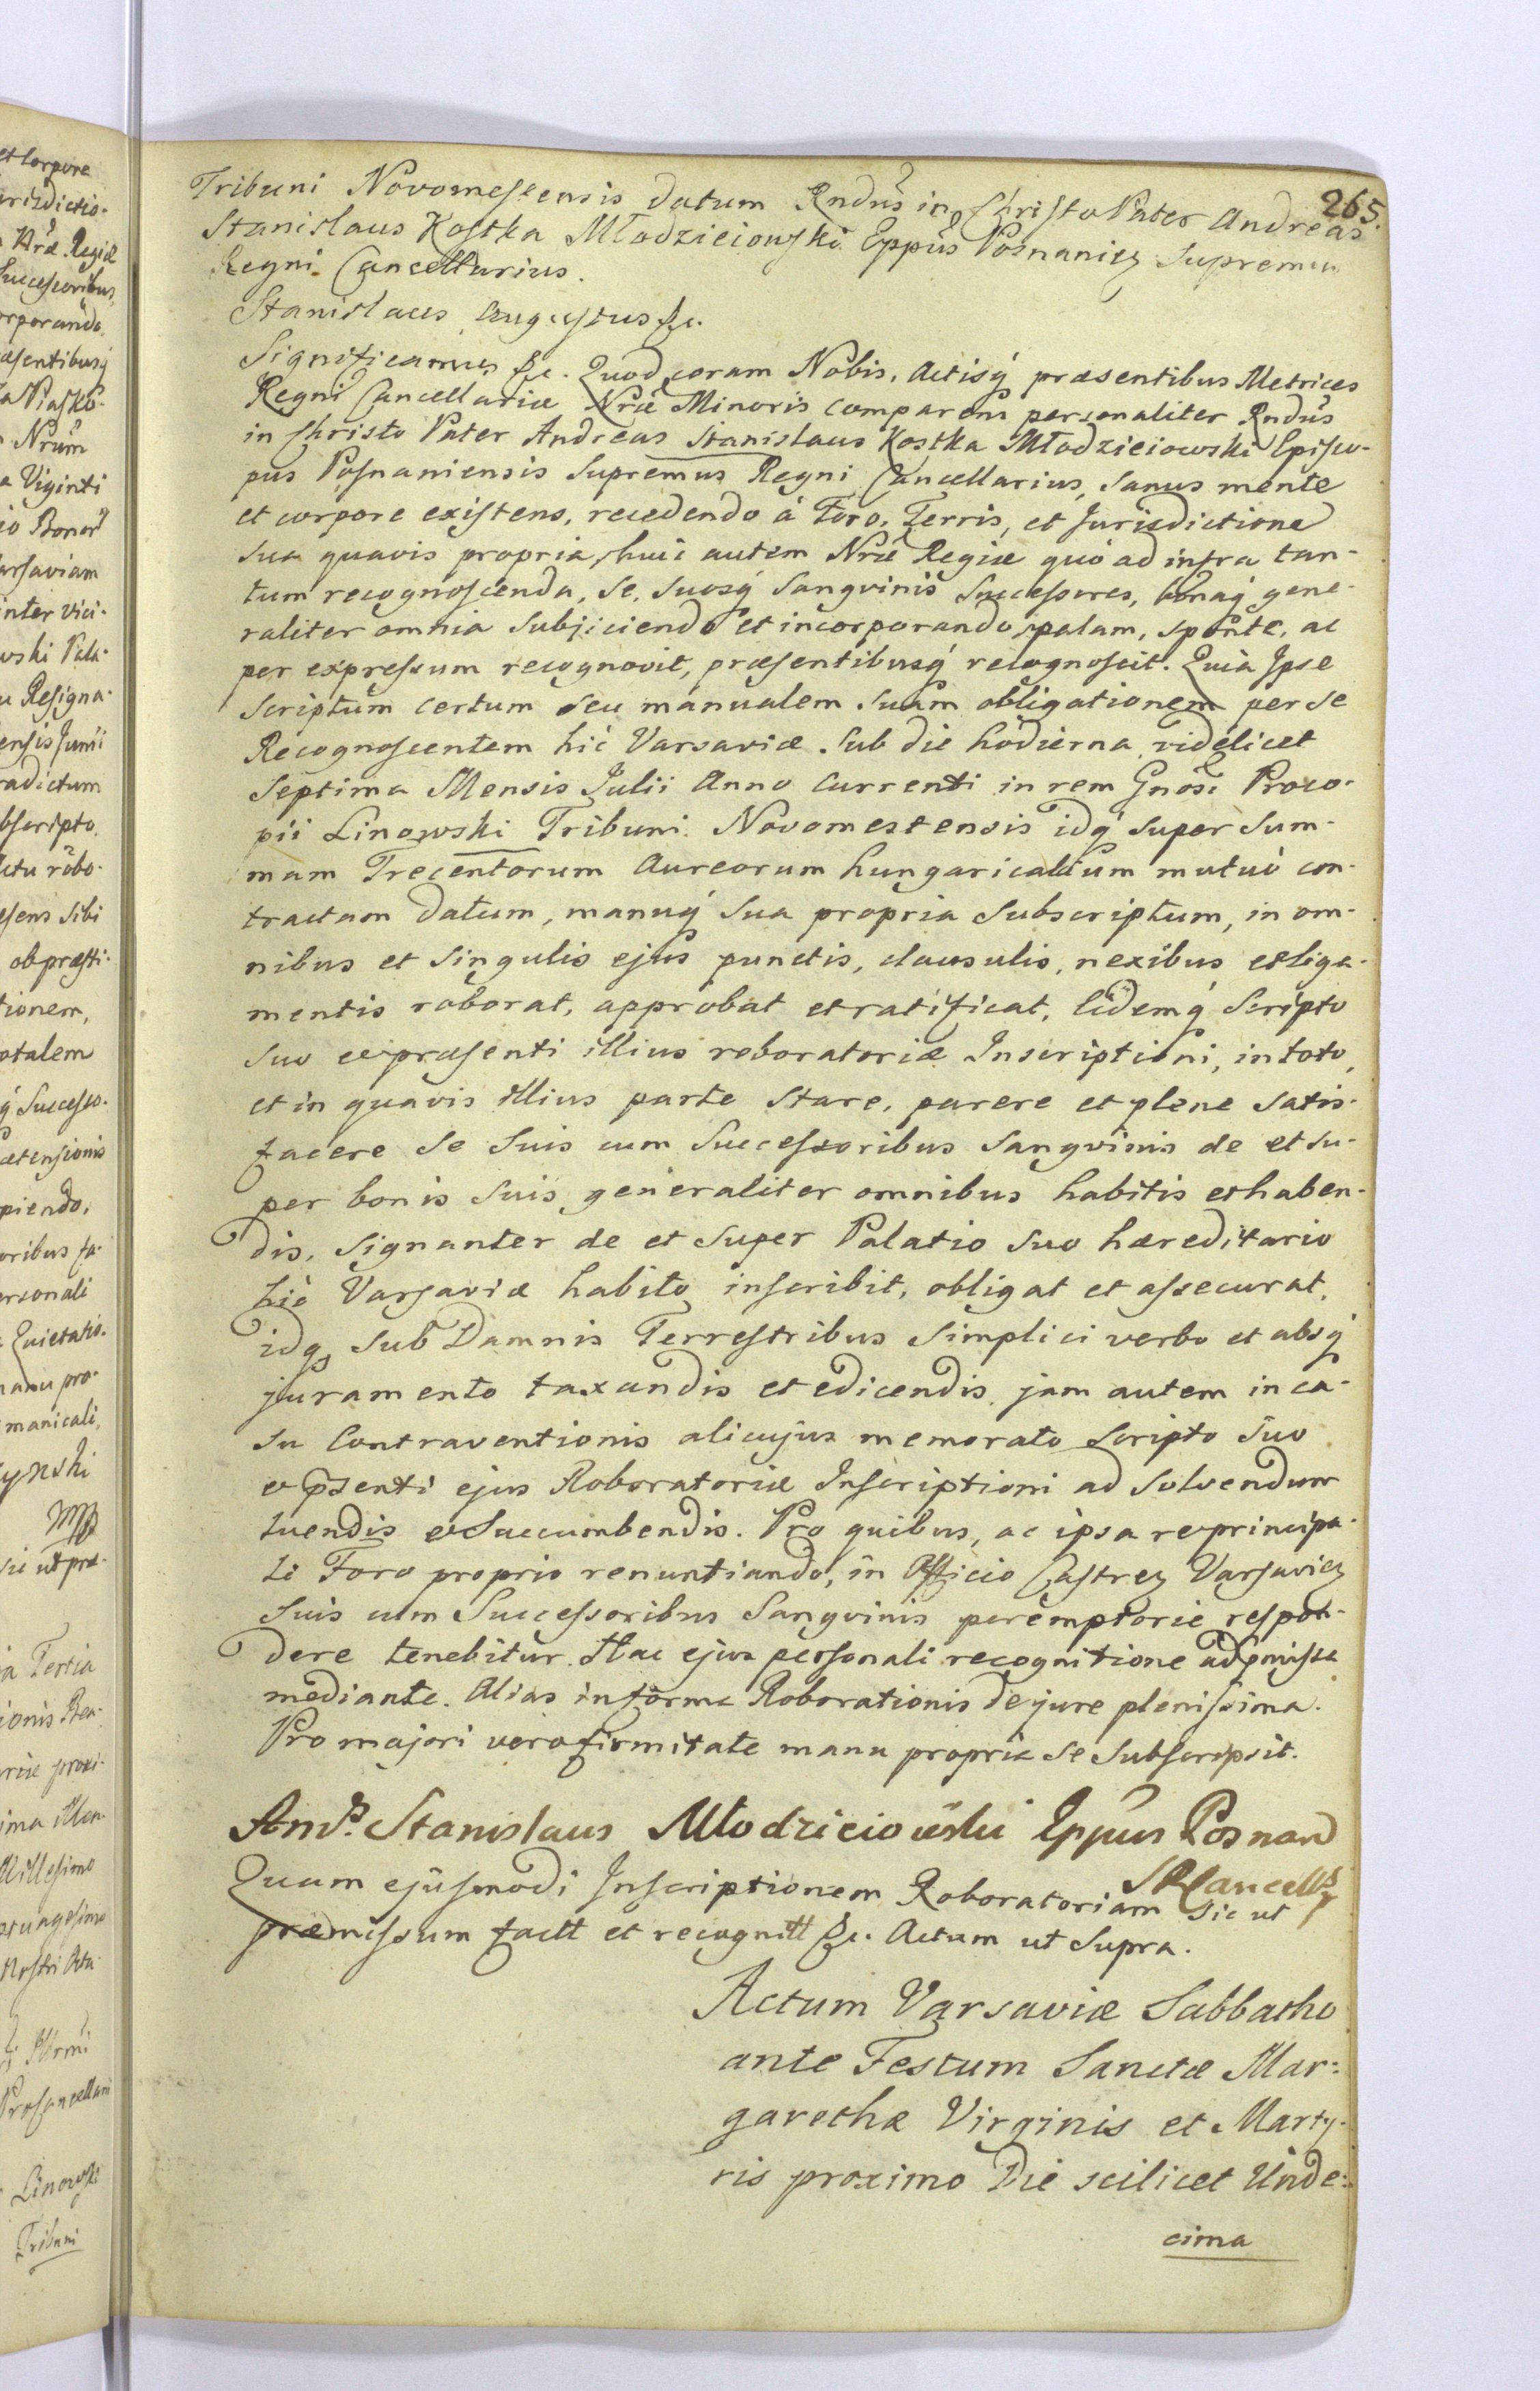 265.
Tribuni Novomestensis datum Rndus in Christo Pater Andreas
Stanislaus Kostka Młodzieiowski Eppus Posnaniens Supremus
Regni Cancellarius.
Stanislaus Augustus &c.
Significamus &c. Quod coram Nobis, Actisq́ præsentibus Metrices
Regni Cancellariæ Nræ Minoris comparens personaliter Rndus
in Christo Pater Andreas Stanislaus Kostka Młodzieiowski Episco-
pus Posnaniensis Supremus Regni Cancellarius, sanus mente
et corpore existens, recedendo à Foro, Terris, et Jurisdictione
sua quavis propria, huic autem Nræ Regiæ quó ad infra tan-
tum recognoscenda, se, suosq́ sangvinis Successores, bonaq́ gene-
raliter omnia subjiciendo et incorporando, palam, sponte, ac
per expressum recognovit, præsentibusq́ recognoscit. Quia Ipse
scriptum certum seu manualem suam obligationem per se
Recognoscentem hic Varsaviæ sub die hodierna videlicet
septima Mensis Julii Anno Currenti in rem Gnosi Proco-
pii Linowski Tribuni Novomestensis idq́ super sum-
mam Trecentorum Aureorum hungaricalium mutuó con-
tractam datum, manuq́ sua propria subscriptum, in om-
nibus et singulis ejus punctis, clausulis, nexibus et liga-
mentis roborat, approbat et ratificat, Eidemq́ Scripto
suo et præsenti illius roboratoriæ Inscriptioni, in toto,
et in quavis illius parte stare, parere et plene satis-
facere se suis cum Successoribus sangvinis de et su-
per bonis suis generaliter omnibus habitis et haben-
dis, signanter de et super Palatio suo hæreditario
hic Varsaviæ habito inscribit, obligat et assecurat,
idq sub Damnis Terrestribus simplici verbo et absq́
juramento taxandis et edicendis, jam autem in ca-
su Contraventionis alicujus memorato scripto suo
et psenti ejus Roboratoriæ Inscriptioni ad solvendum
luendis et succumbendis. Pro quibus, ac ipsa re principa-
li Foro proprio renuntiando, in Officio Castren Varsavien
suis cum Successoribus Sangvinis peremptorie respon-
dere tenebitur. Hac ejus personali recognitione ad pmissa
mediante. Alias in forma Roborationis de jure plenissima.
Pro majori vero firmitate manu propria se subscripsit.
Stanislaus Młodzieiowski Eppus Posnan
S R Cancells
Quam ejusmodi Inscriptionem Roboratoriam sic ut
præmissum factt et recognitt &c. Actum ut supra.
Actum Varsaviæ Sabbatho
ante Festum Sanctæ Mar:
garethæ Virginis et Marty-
ris proximo Die scilicet Unde:
cima